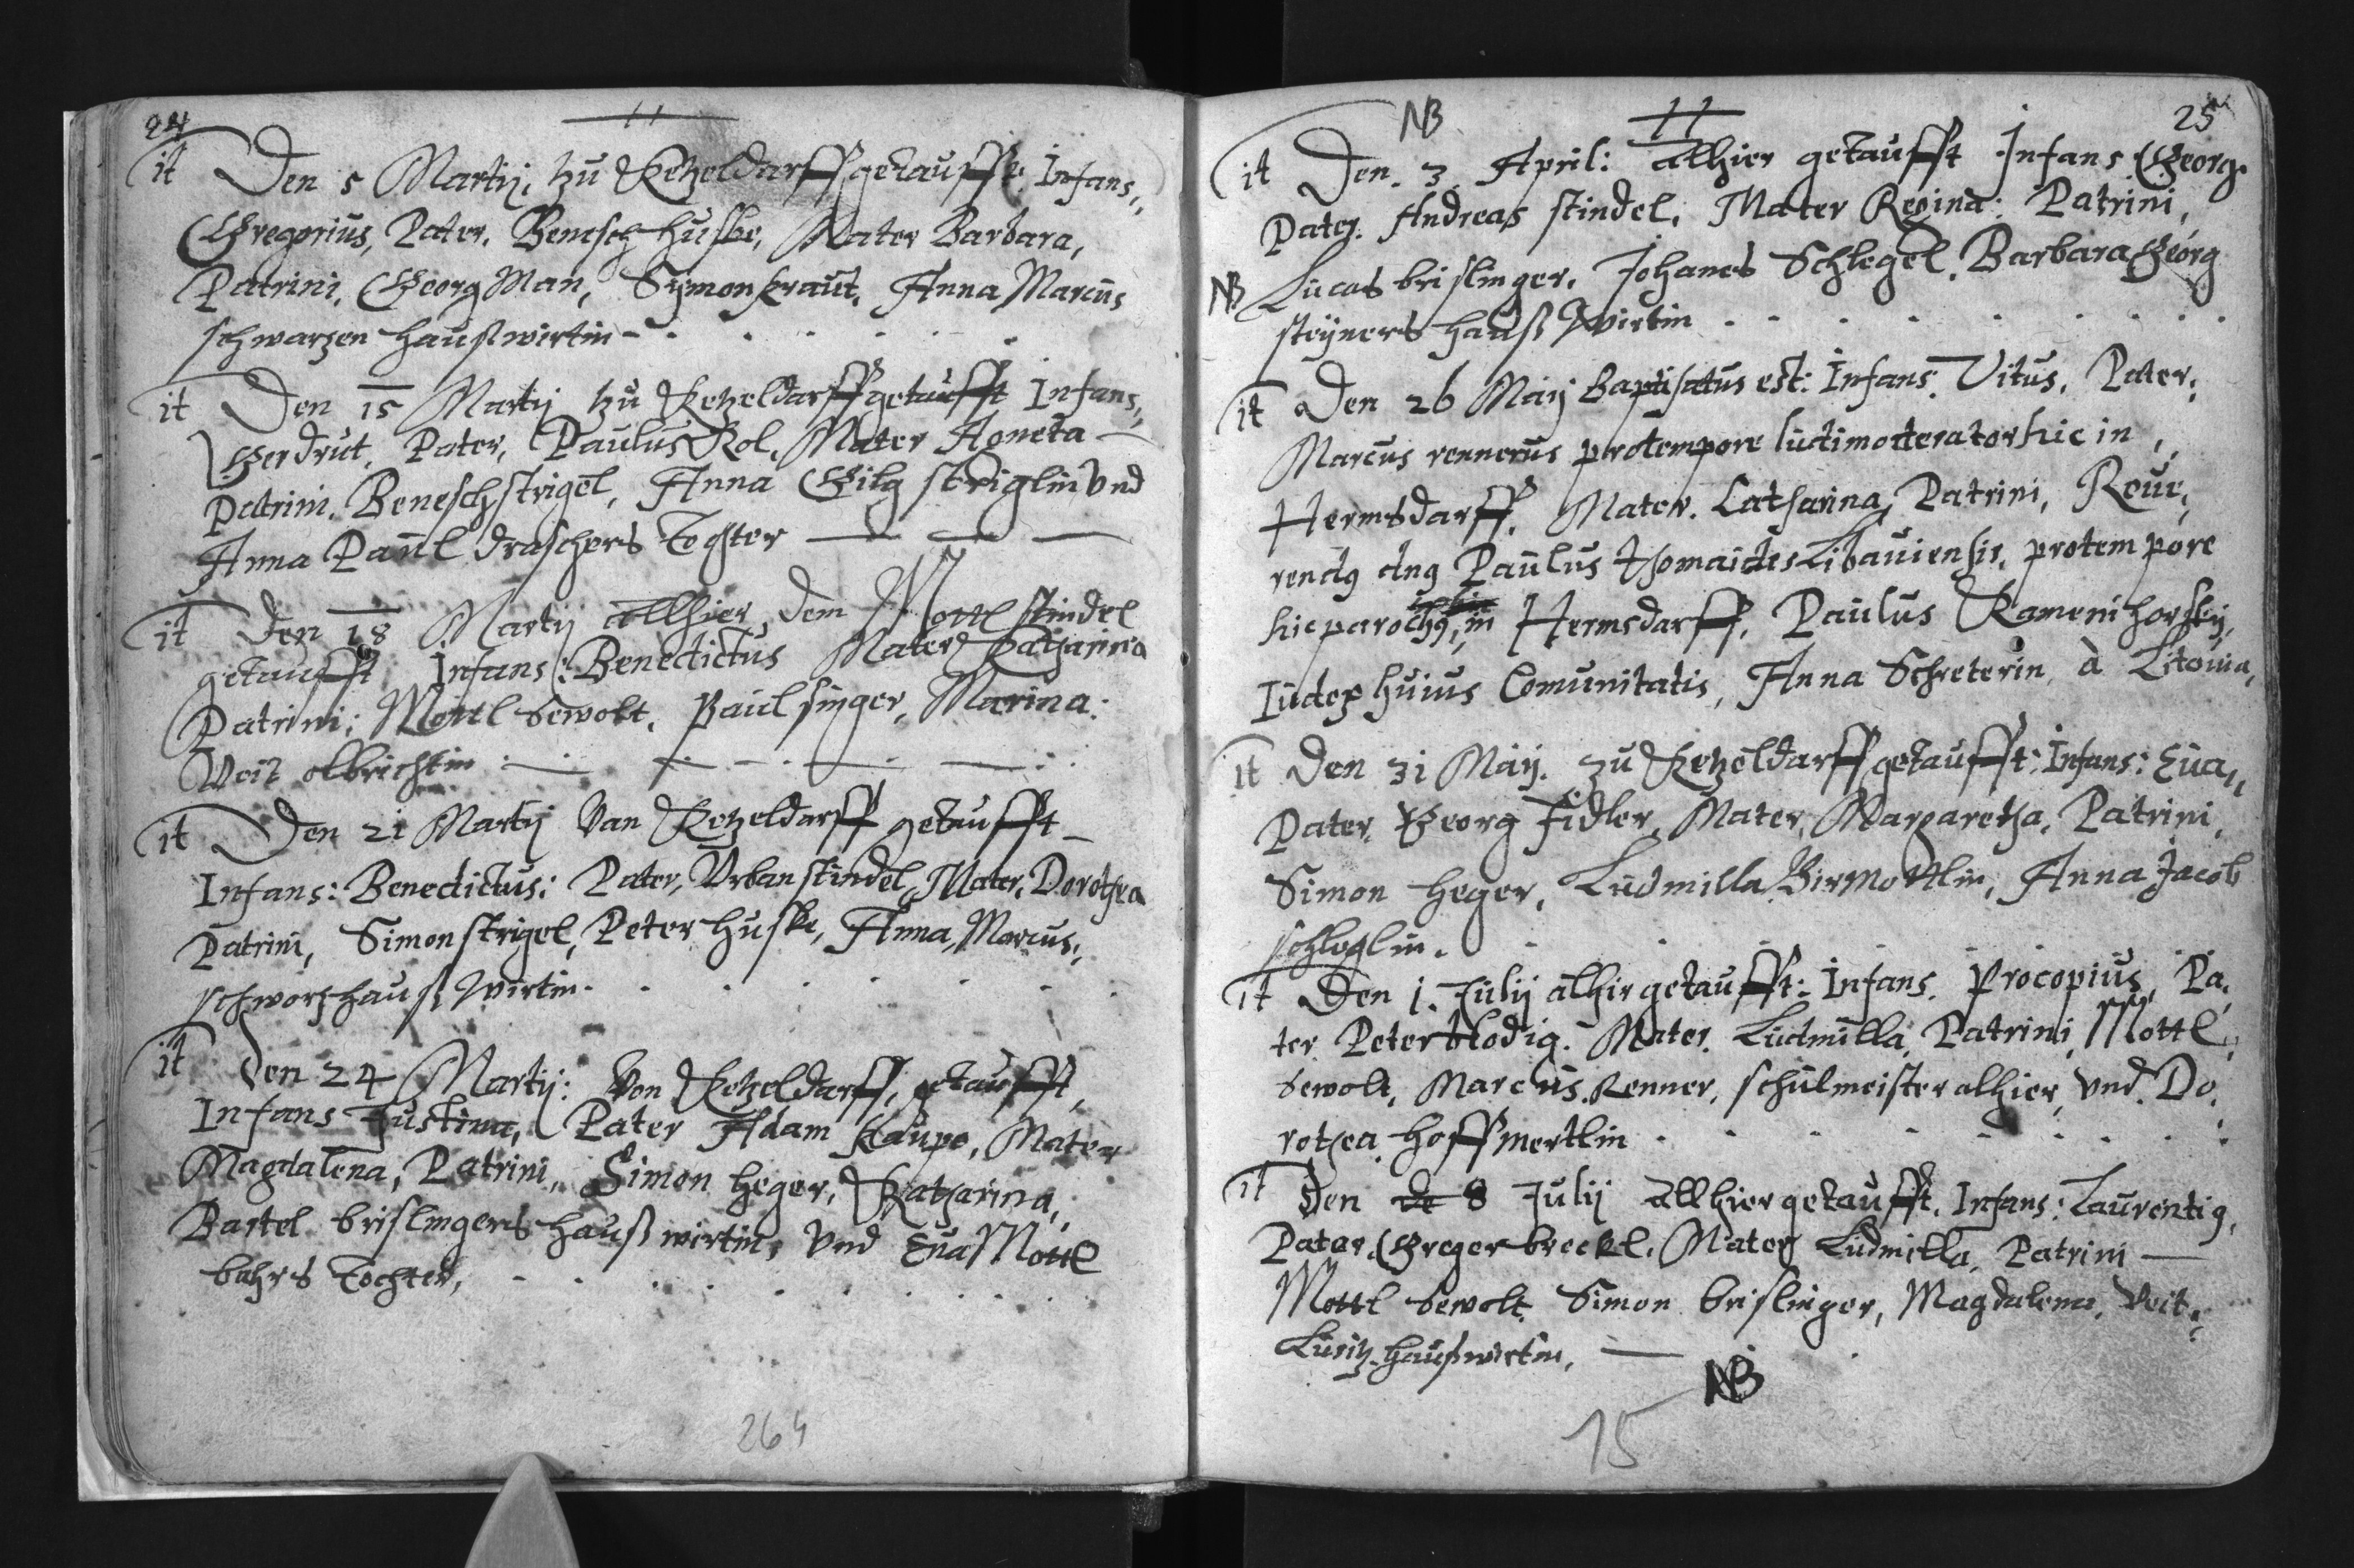 24
11
it Den 5 Martij, zu Ketzeldarff getaufft Infans,,
Gregorius, Pater. Benesch Huske, Mater Barbara,
Patrini, Georg Man, Symon kraut, Anna Marcus
schwarzen haußwirtin
it Den 15 Martij zu Ketzeldarff getaufft Infans,,
Gerdrut, Pater, Paulus Kol, Mater Agneta
Patrini. Benesch strigel, Anna Gilg striglin Vnd
Anna Paul draschers Tochter
it Den 18 Martij allhier, dem Mottl stindel
getaufft Infans: Benedictus Mater Catharina
Patrini: Mottl Sewolt, Paul singer, Marina:
Veit olbrichtin
it Den 21 Martij Van Ketzeldarff getaufft
Infans: Benedictus: Pater, Vrban stindel, Mater, Dorothea
Patrini, Simon strigel, Peter Huske, Anna, Marcus,,
schworz hauß Wirtin
it Den 24 Martij: Von Ketzeldarff, getaufft,
Infans Justina, Pater Adam Kaupe, Mater
Magdalena, Patrini,, Simon Heger, Katharina,,
Bartel brislingers haußwirtin, Vnd Eua Mottl
bahrs Tochter,
264
NB
11
25
it Den. 3 April: allhier getaufft Infans Georg.
Pater. Andreas stindel, Mater Regina: Patrini,
NB Lucas brislinger. Johanes Schlegel, Barbara Georg
steyners hauß Wirtin
it Den 26 Maij Baptisatus est: Infans. Vitus, Pater,
Marcus rennerus protempore ludimoderator hic in,,
Hermsdarff, Mater. Catharina, Patrini, Reue,,
rendg dng Paulus Thomaides Libauiensis, protempore
hic parochg, in Hermsdarff, Paulus Kamenihorsky,
Iudex huius Comunitatis, Anna Schreterin à Litouia,
it Den 31 Maij. zu Ketzeldarff getaufft: Infans: Eua,,
Pater, Georg Fidler, Mater, Margaretha, Patrini,
Simon Heger, Ludmilla Birmottlin, Anna Jacob
schleglin.
it Den 1. Julij alhir getaufft: Infans. Procopius, Pa,,
ter Peter blodig. Mater. Ludmilla, Patrini, Mottl,,
Sewolt, Marcus Renner, schulmeister alhier, Vnd. Do,,
rothea hoffmertlin
it Den de 8 Julij allhier getaufft. Infans: Laurentig,
Pater, Greger breckl. Mater Ludmilla. Patrini
Mottl Sewolt. Simon brislinger, Magdalena, Veit,,
Lusitz. haußwirtin,
NB
15